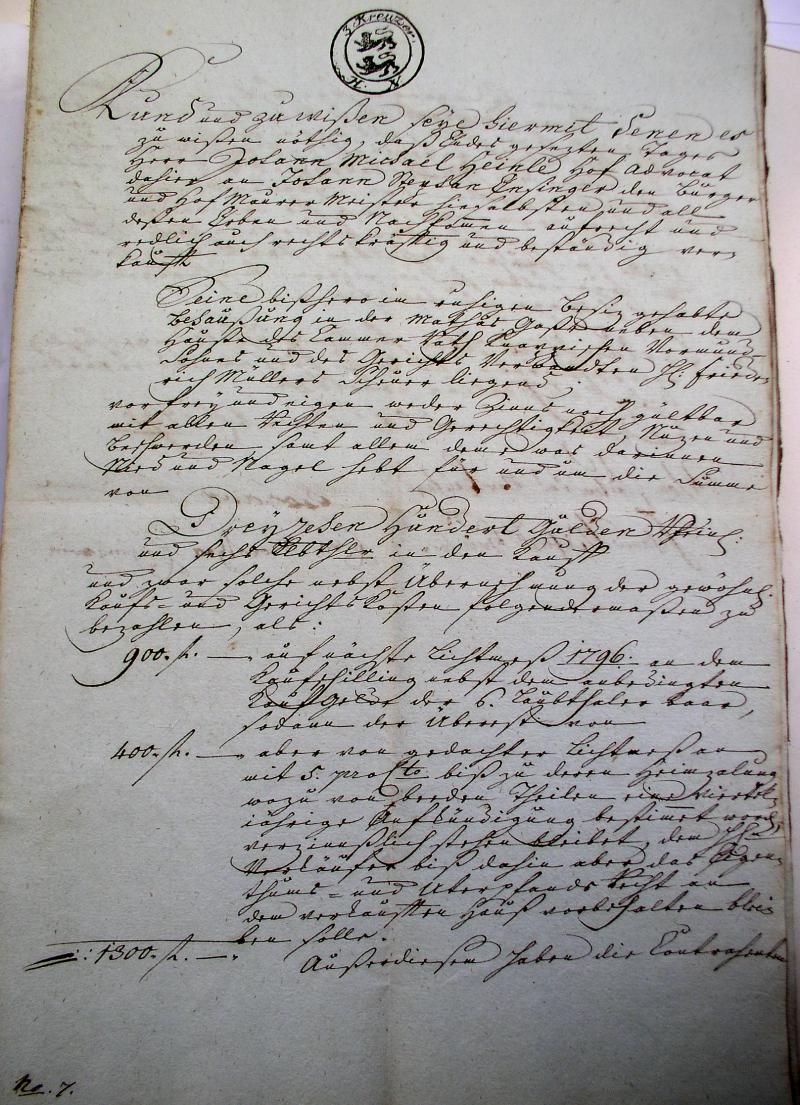 3. Kreuzer.
H. N
Kund und zu wißen seye hiermit Denen es
zu wißen nöthig, daß Endes gesezten Tages
Herr Johann Michael Heinle Hof Advocat
dahier an Johann Stephan Ensinger den Burger
und Hof Maurer Meister hieselbsten und all
deßen Erben und Nachkommen aufrecht und
redlich auch rechtskräftig und beständig ver-
kauft
Seine bißhero im ruhigen Besiz gehabte
Behaußung in der Gaße neben dem
Hauße des Cammer Rath Vormund-
und des Gerichts Verwandten H: Fried-
rich Müllers Scheuer liegend,
vor frey und eigen weder Zinns noch gültbar
mit allen Rechten und Gerechtigkeit, Nuzen und
Beschwerden samt allem deme was darinnen
Nied und Nagel hebt für und um die Summe
von
Dreyzehen Hundert Gulden Rhein:
und sechs Lbthlr in den Kauff
und zwar solche nebst Übernehmung der gewöhnl.
Kaufs- und Gerichtskosten folgendermaßen zu
bezahlen, als:
900. fl. — auf nächste Lichtmeß 1796. an dem
Kaufschilling nebst dem anbedingten
Kauf Geld der 6. Laubthaler baar,
sodann der Überrest von
400. fl. — aber von gedachter Lichtmeß an
mit 5. pro Cto. biß zu deren Heimzalung
wozu von beeden Theilen eine viertel-
jährige Aufkündigung bestimmt word,
verzinnßlich stehen bleibet, dem H:
Verkäufer biß dahin aber das Eigen-
thums- und Unterpfands Recht an
dem verkauften Hauß vorbehalten blei-
ben solle.
1300. fl. —.
Außerdiesem haben die Contrahenten
No. 7.